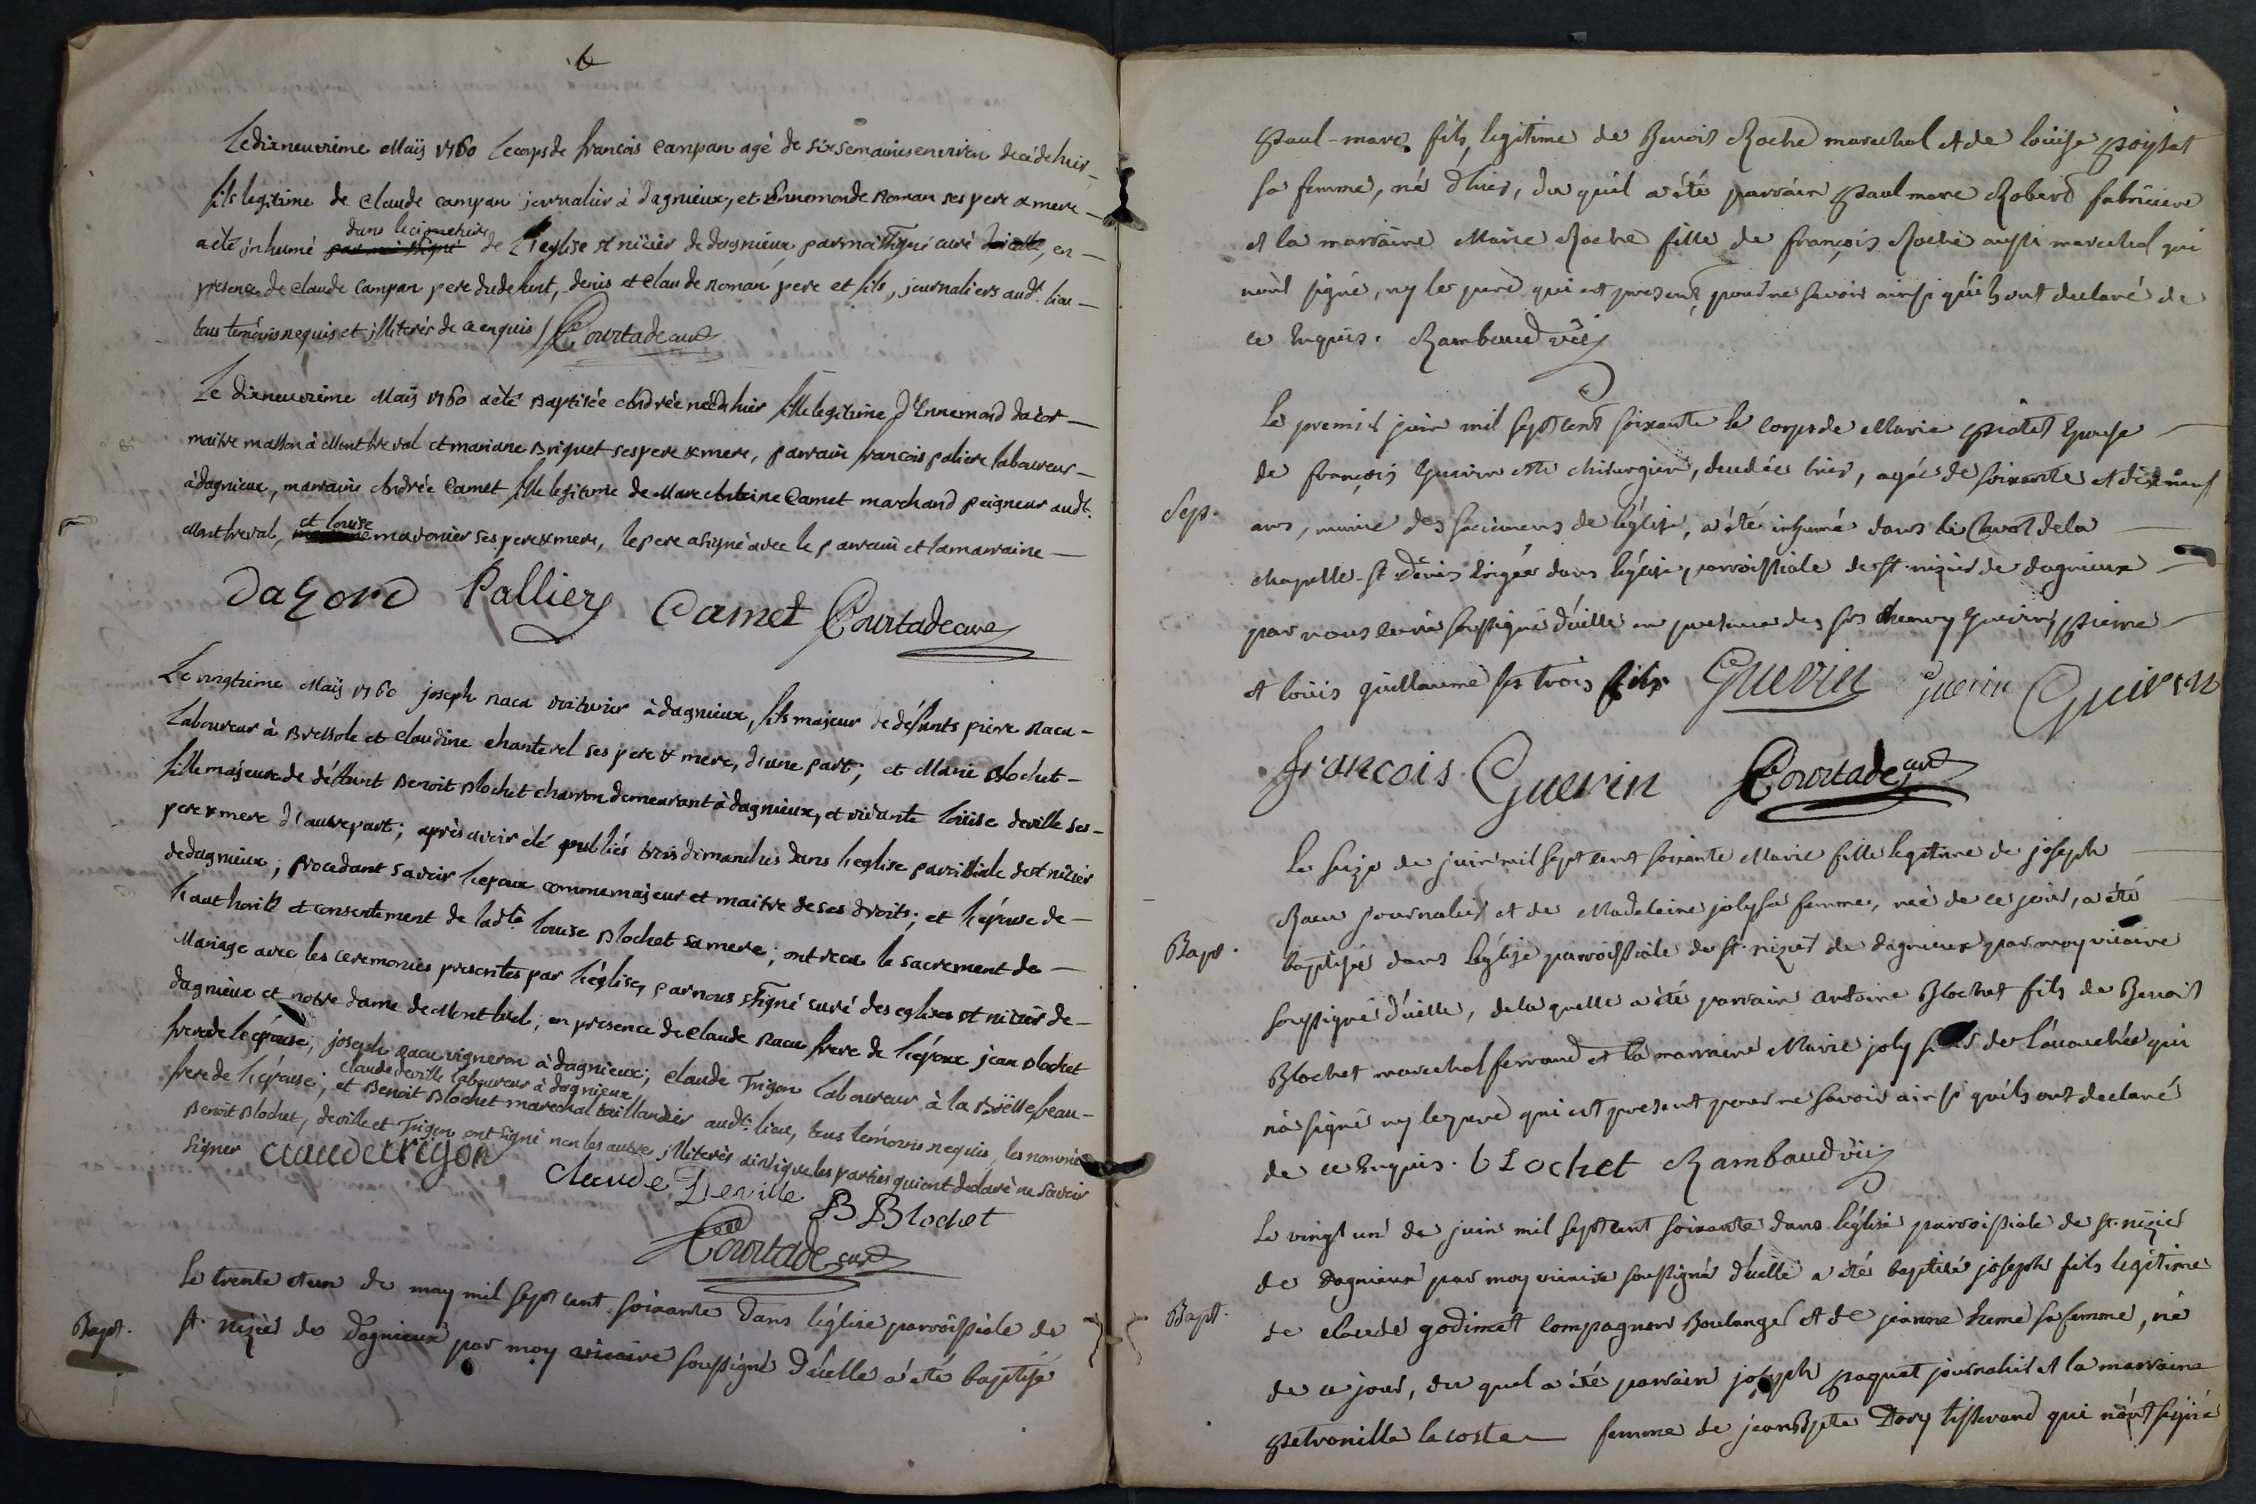 6
Le dixneuvieme Maÿ 1760 le corps de francois campan agé de six semaines environ decédé hier
fils legitime de claude campan journalier à dagnieux, et Ennemonde Roman ses pere & mere
a été inhumé par moi ssigné dans le cimetiere de l'eglise st nizier de dagnieux, par moi ssigné curé en
presence de claude campan pere du defunt, denis et claude roman pere et fils, journaliers audt. lieu
tous temoins requis et illiterés de ce enquis / Courtade curé
Le dixneuvieme Maÿ 1760 a été Baptisée Andrée née d'hier fille legitime d'Ennemond dacor
maitre masson à Montbreval et mariane Briquet ses pere & mere, parrain francois paliere laboureur
à dagnieux, marraine Andrée Camet fille legitime de Marc Antoine Camet marchand peigneur audt.
Montbreval, et louise madonier ses pere & mere, le pere a signé avec le parrain et la marraine
Dagord Pallier Camet Courtade curé
Le vingtieme Maÿ 1760 joseph Racu voiturier à dagnieux, fils majeur de défunts pierre Racu
laboureur à Bressole et claudine chanterel ses pere & mere, d'une part; et Marie Blochet
fille majeure de défunt Benoit Blochet charron demeurant à dagnieux, et vivante louise deville ses
pere & mere d'autre part; après avoir été publiés trois dimanches dans l'eglise paroissiale de st nizier
de dagnieux; procedant savoir l'epoux comme majeur et maitre de ses droits; et l'épouse de
l'authorité et consentement de ladte louise Blochet sa mere; ont recu le sacrement de
Mariage avec les ceremonies prescrites par l'église, par nous ssigné curé des eglises st nizier de
dagnieux et notre dame de Montluel; en presence de claude Racu frere de l'époux jean Blochet
frere de l'épouse; joseph Racu vigneron à dagnieux; claude Trigon laboureur à la Boësse beau-
frere de l'épouse; claude deville laboureur à dagnieux et Benoit Blochet marechal taillandier audt. lieu, tous temoins requis, les nommés
Benoit Blochet, deville et Trigon ont signé non les autres illiterés ainsi que les parties qui ont declaré ne savoir
signer claude trigon
Claude Deville B Blochet
Courtade curé
Bapt.
Le trente et un de may mil sept cent soixante dans l'église parroissiale de
st. nizier de Dagnieux par moy vicaire soussigné d'icelle a été baptisé
Paul-marc fils legitime de Benoit Roche marechal et de loüise poysat
sa femme, né d'hier, du quel a été parrain Paul marc Robert
et la marraine Marie Roche fille de françois Roche aussi marechal qui
n'ont signé, ny le pere qui est present, pour ne savoir ainsi qu'ils ont declaré de
ce Enquis. Rambaud vic.
Sep.
Le premier juin mil sept cent soixante le corps de Marie Epouse
de françois Guerin mtre chirurgien, decedée hier, agée de soixante et dix neuf
ans, munie des sacremens de l'église, a été inhumé dans le Caveau de la
chapelle st Denis Erigée dans l'église parroissiale de st. nizier de dagnieux
par nous curé soussigné d'icelle en presence des srs Guerin, Pierre
et loüis guillaume ses trois fils. Guerin Guerin Guerin
françois Guerin Courtade curé
Bapt.
Le seize de juin mil sept cent soixante Marie fille legitime de joseph
Racu journalier et de Madeleine joly sa femme, née de ce jour, a été
baptisée dans l'église parroissiale de st. nizier de dagnieux par moy vicaire
soussigné d'icelle, de la quelle a été parrain antoine Blochet fils de Benoit
Blochet marechal ferrand et la marraine Marie joly de l'acouchée qui
n'a signé ny le pere qui est present pour ne savoir ainsi qu'ils ont declaré
de ce Enquis. blochet Rambaud vic.
Bapt.
Le vingt un de juin mil sept cent soixante dans l'église parroissiale de st. nizier
de Dagnieux par moy vicaire soussigné d'icelle a été baptisé joseph fils legitime
de claude godimet compagnon Boulanger et de jeanne sa femme, né
de ce jour, du quel a été parrain joseph paquet journalier et la marraine
petronille lacoste femme de jean Bpte Dory tisserand qui n'ont signé